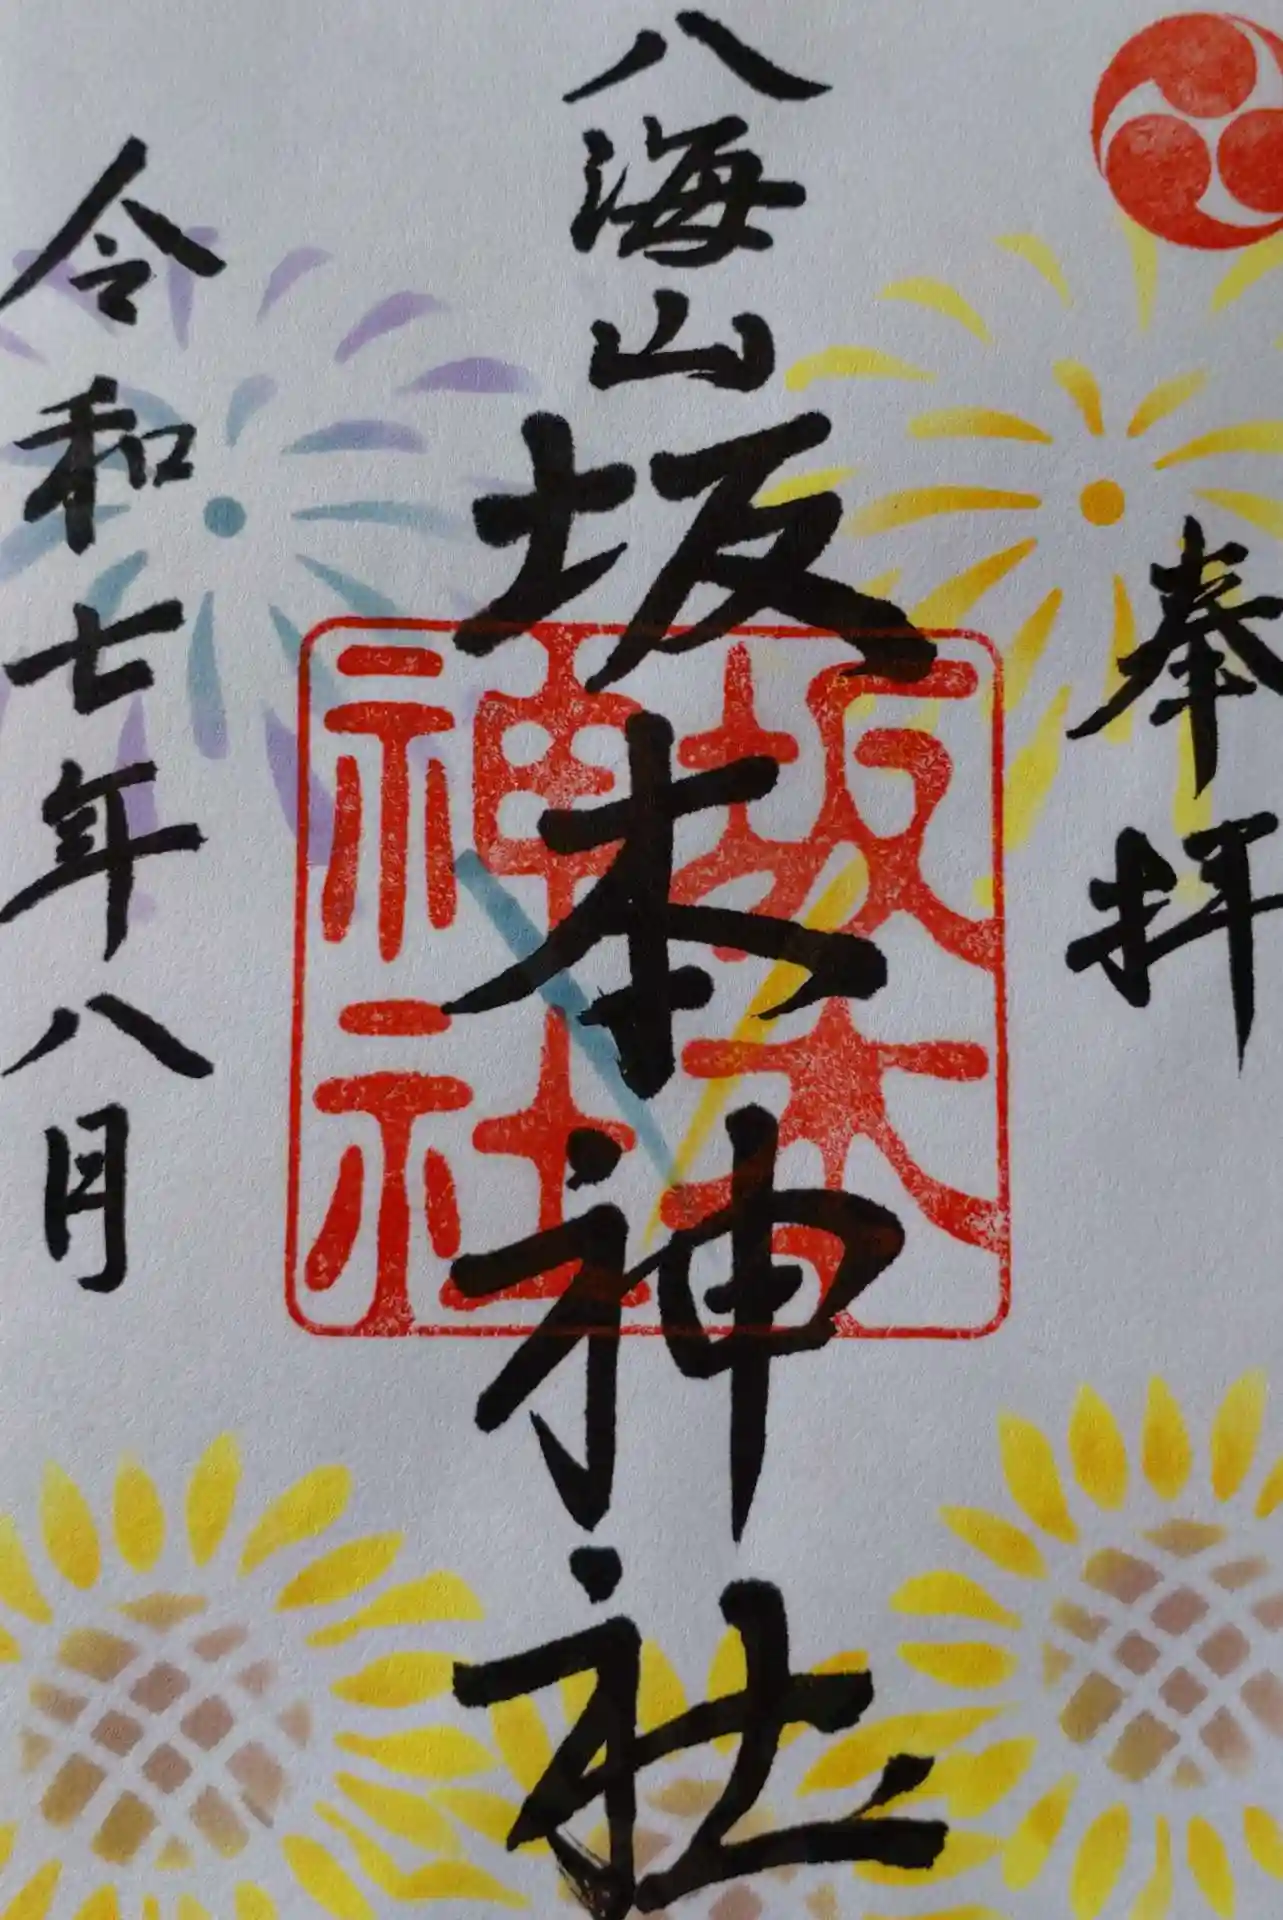 奉拝
八海山
坂本神社
坂本
神社
令和七年八月